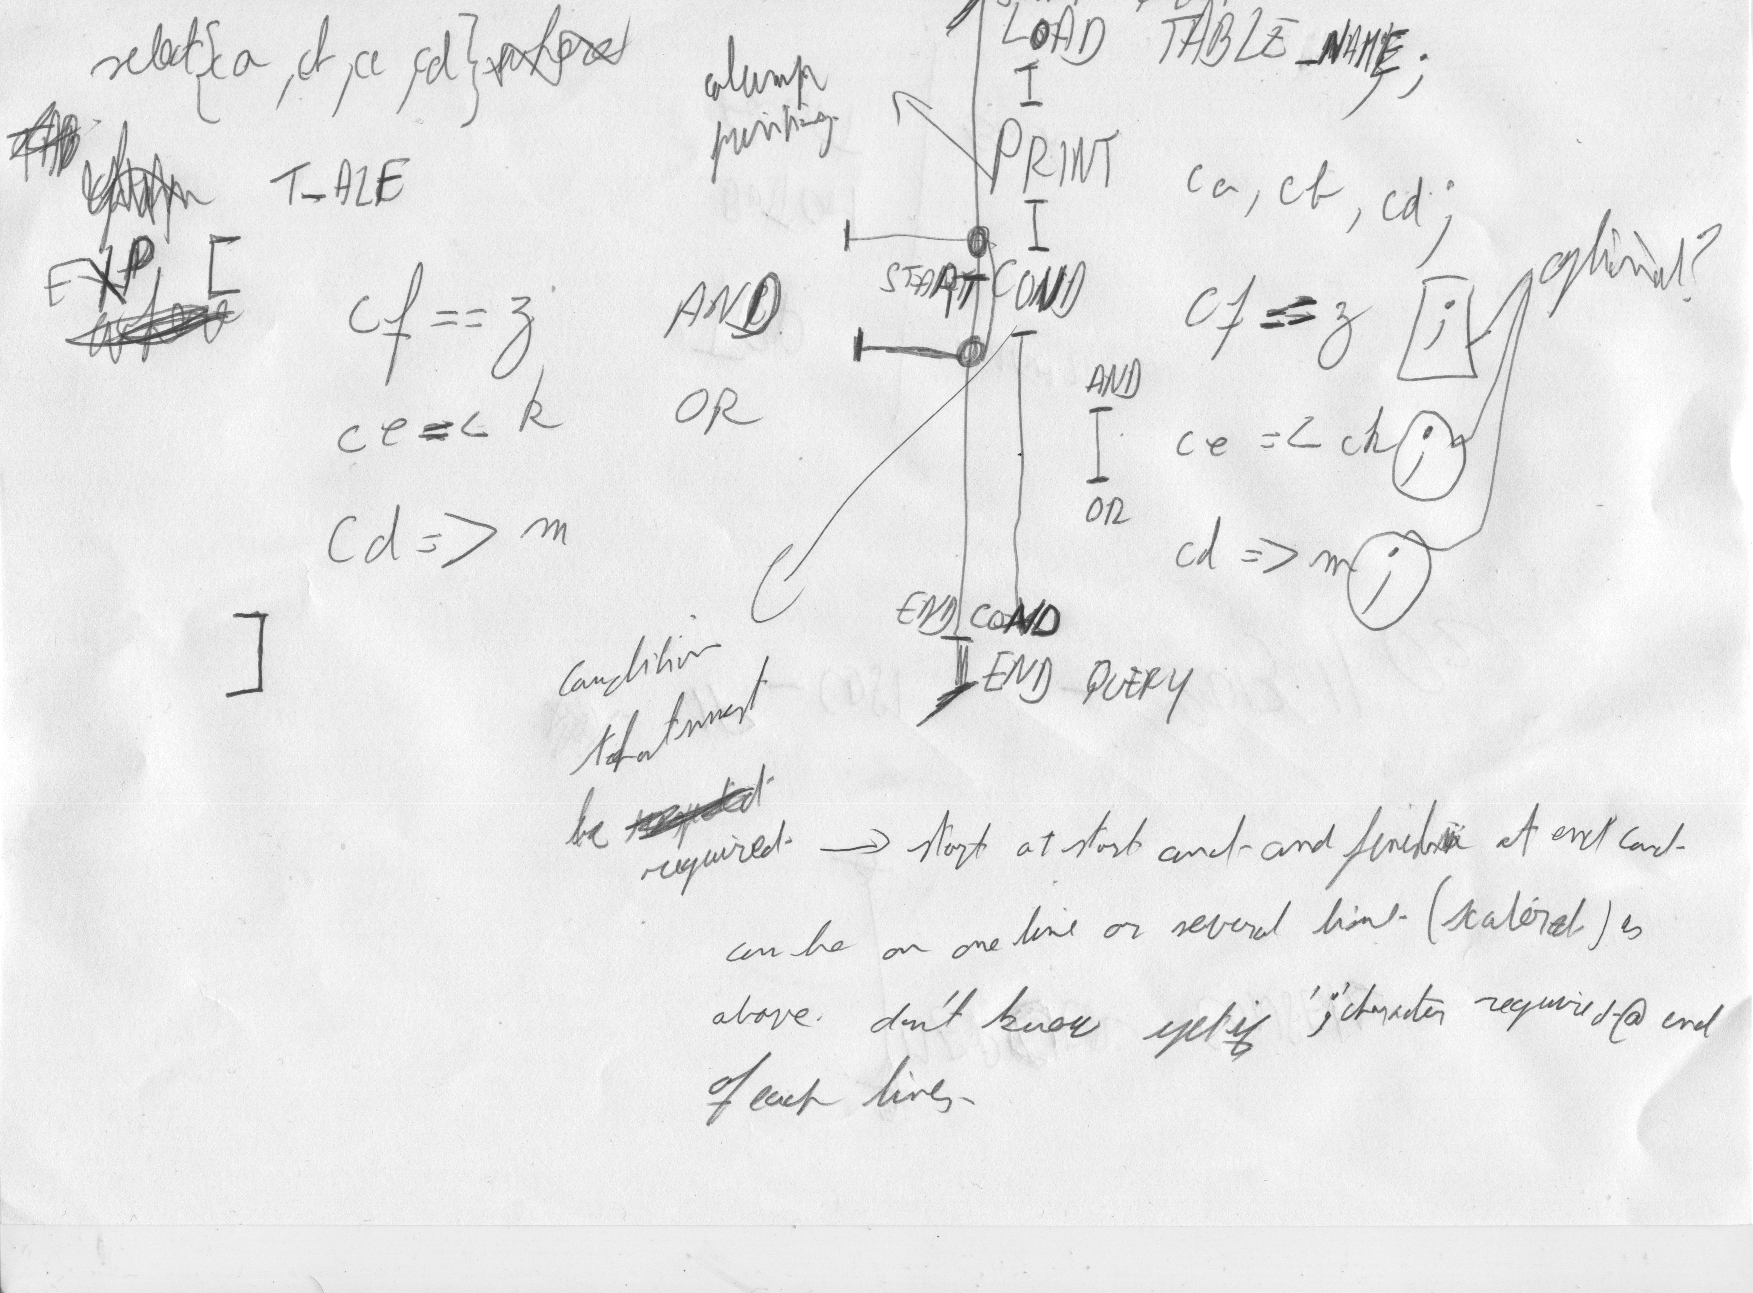 select{ca, cb, cc, cd}
T_ABLE
EXP [
cf == z AND
ce =< k OR
cd => m
]
column
printing
LOAD TABLE_NAME;
PRINT ca, cb, cd;
START COND cf == z ;
optional?
AND
ce =< ck ;
OR
cd => m ;
END COND
END QUERY
condition
that must
be
required → start at start cond and finish at end cond
can be on one line or several line. ( ) as
above. don't know yet if ';' character required @ end
of each lines.